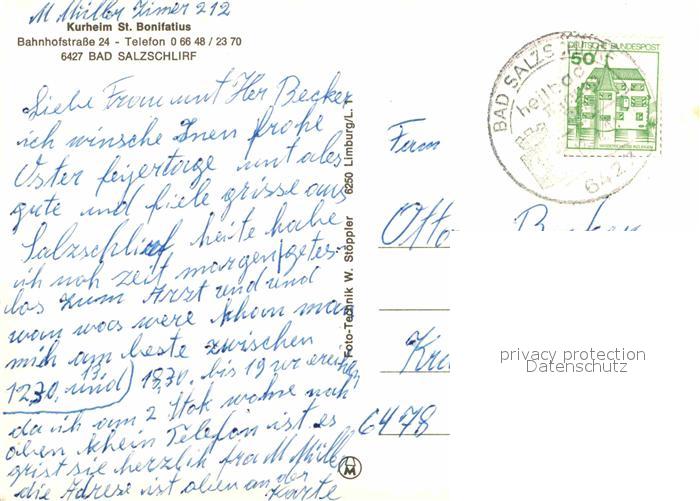 M Müller Zimer 212
Kurheim St. Bonifatius
Bahnhofstraße 24 - Telefon 0 66 48 / 23 70
6427 BAD SALZSCHLIRF
Liebe Frau unt Her Becker
ich winsche Inen frohe
Oster feijertage unt ales
gute und fiele grisse aus
Salzschlirf heite habe
ich noh zeit morgen getes
los zum Arzt und und
wan was were khan man
mich am beste zwischen
12,30, und 13 18,30. bis 19 ur
da ich am 2 Stok wohne
oben khein Telefon ist es
grist sie herzlik frau M Müller
die Adrese ist oben an der
Karte
Foto-Technik W. Stöppler 6250 Limburg/L. 1
BAD SALZS
heilbad
6427
DEUTSCHE BUNDESPOST
50
Otto
6478
privacy protection
Datenschutz